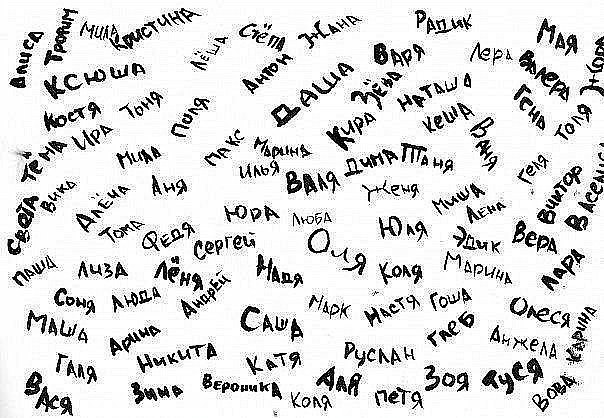 Алиса
Трофим
Мила
Кристина
Лёша
Стёпа
Жана
Радик
Варя
Лера
Мая
Валера
Жора
Ксюша
Антон
Даша
Зёва
Наташа
Гена
Толя
Костя
Тоня
Поля
Кира
Кеша
Ваня
Тёма
Ира
Мила
Макс
Марина
Илья
Дима
Таня
Геля
Виктор
Василиса
Света
Вика
Алёна
Аня
Валя
Женя
Миша
Лена
Тома
Федя
Юра
Люба
Юля
Эдик
Вера
Сергей
Оля
Паша
Лиза
Лёня
Андрей
Надя
Коля
Марина
Лара
Соня
Люда
Марк
Настя
Гоша
Олеся
Маша
Арина
Саша
Глеб
Анжела
Карина
Галя
Никита
Катя
Руслан
Вася
Зина
Вероника
Коля
Аля
Петя
Зоя
Дуся
Вова